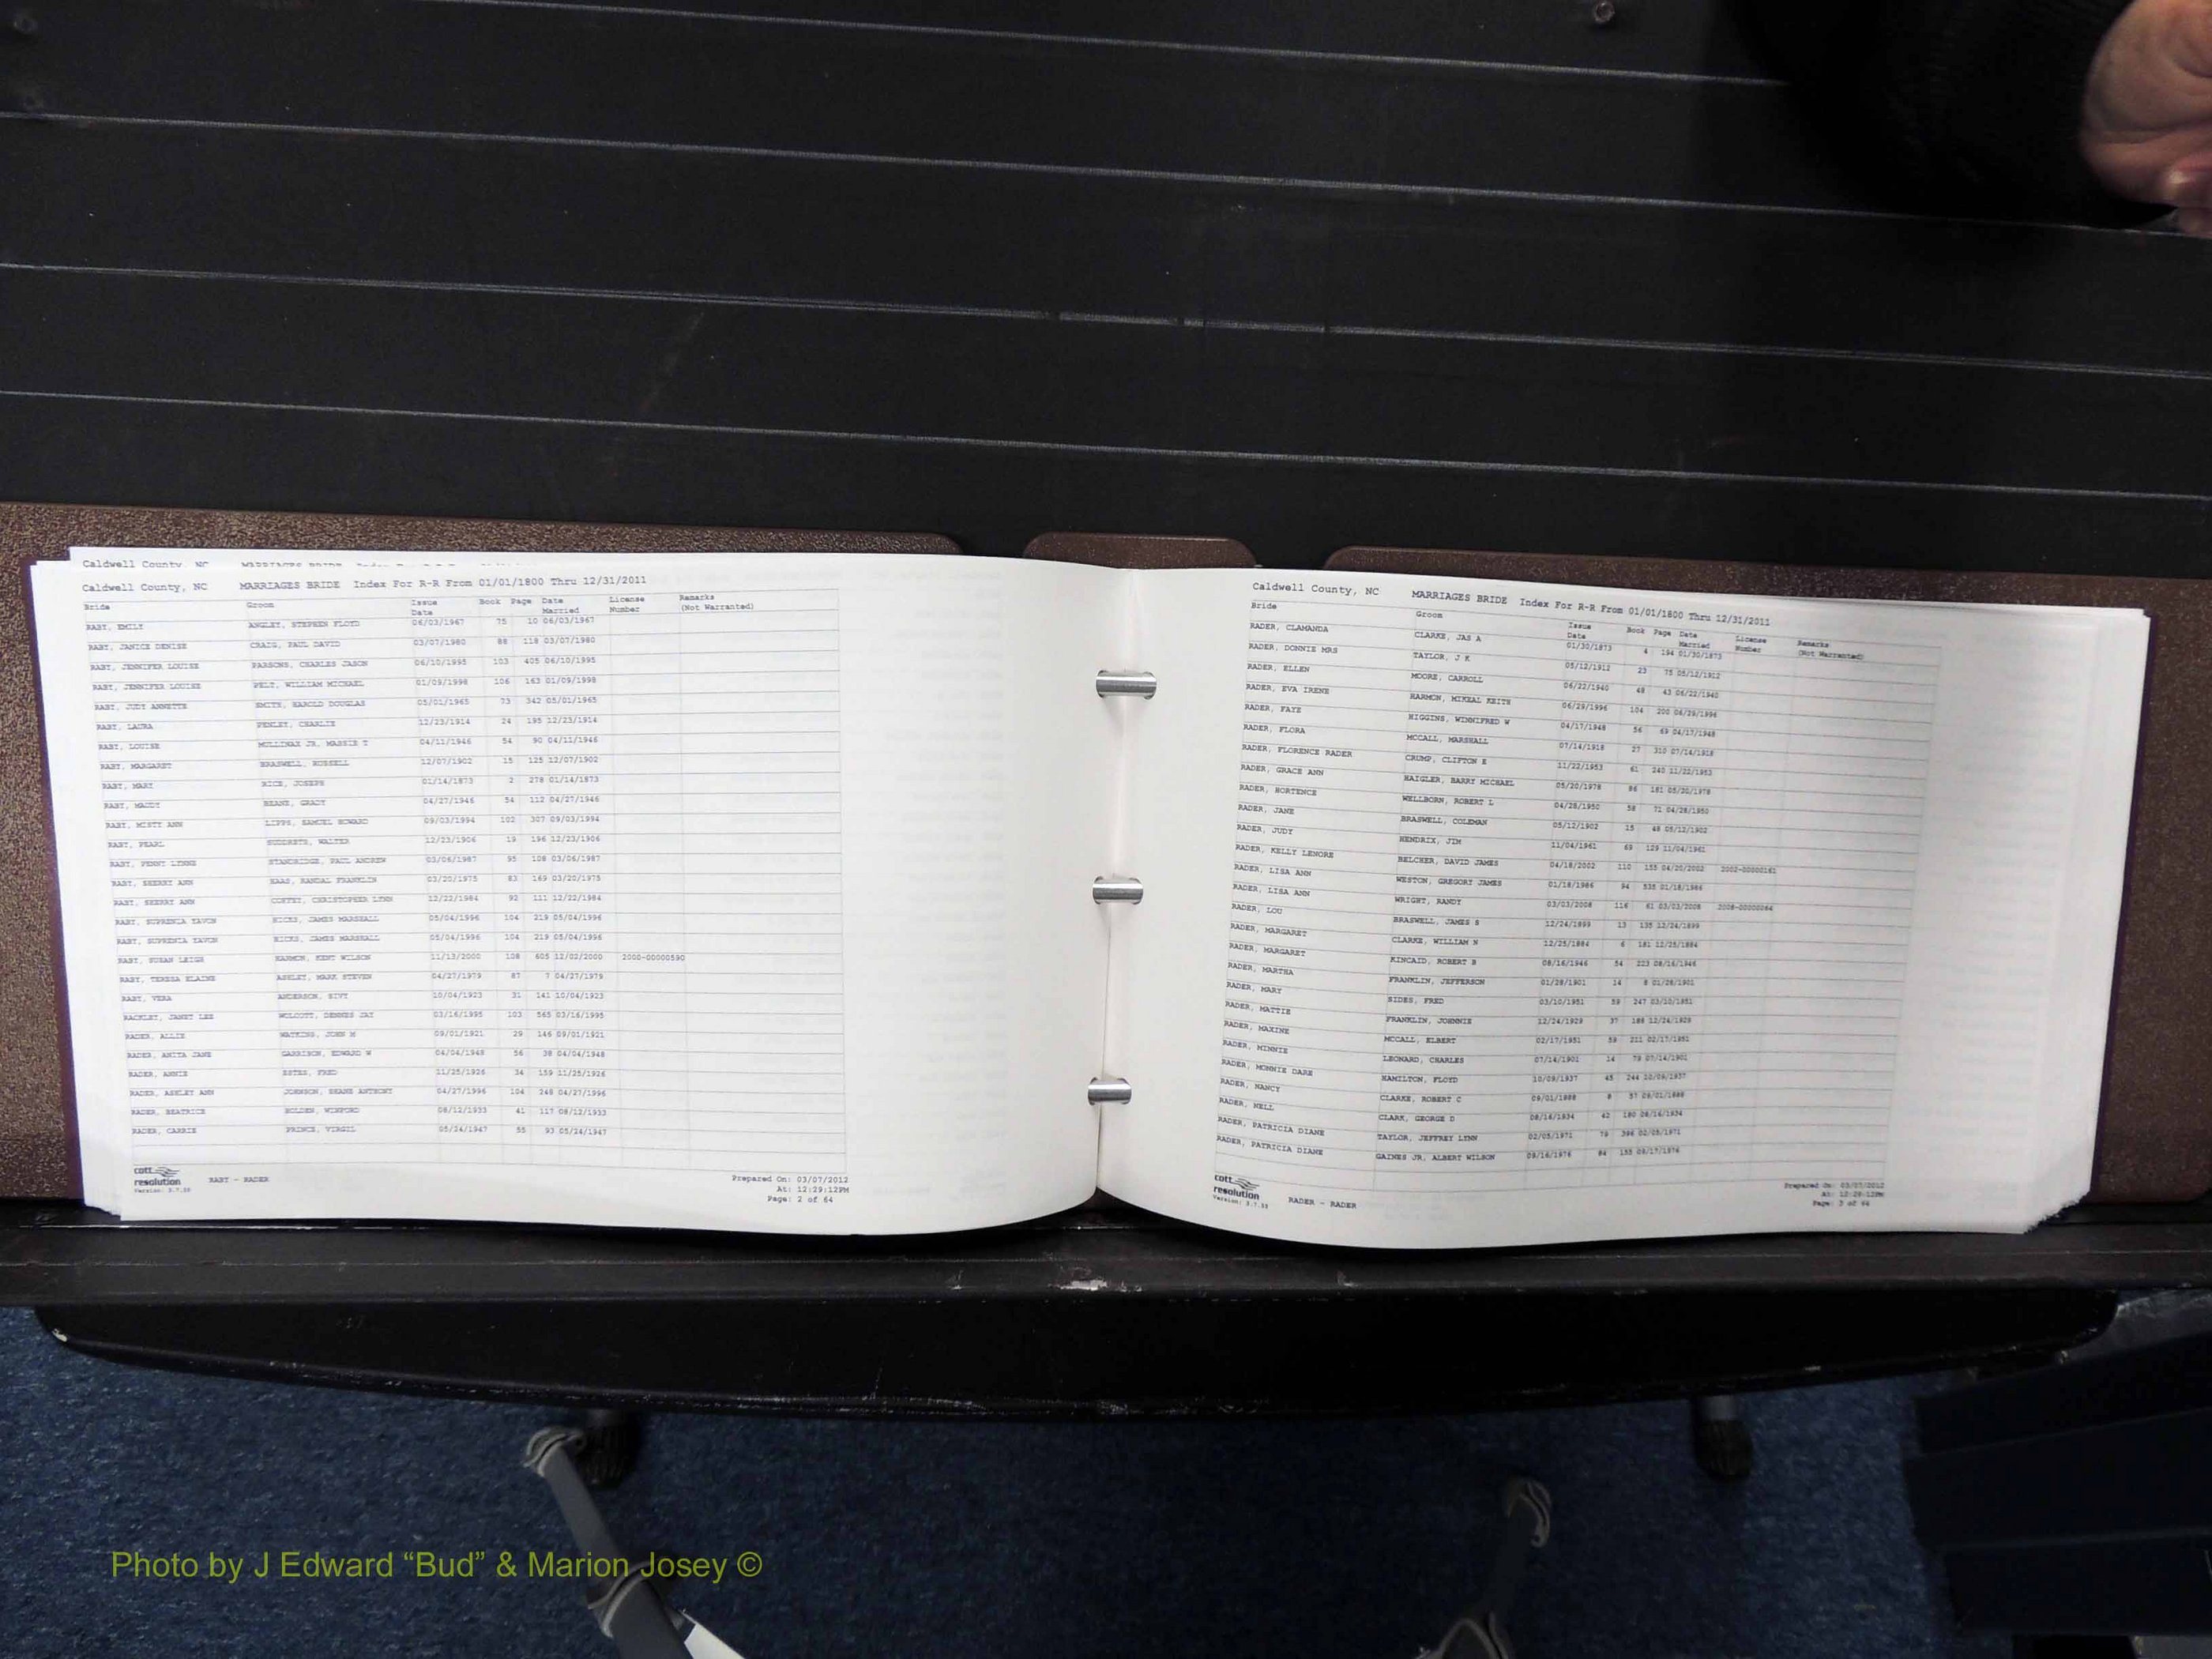 Caldwell County, NC
Caldwell County, NC MARRIAGES BRIDE Index For R-R From 01/01/1800 Thru 12/31/2011
Bride Groom Issue Date Book Page Date Married License Number Remarks (Not Warranted)
RABY, EMILY ANGLEY, STEPHEN FLOYD 06/03/1967 75 10 06/03/1967
RABY, JANICE DENISE CRAIG, PAUL DAVID 03/07/1980 88 118 03/07/1980
RABY, JENNIFER LOUISE PARSONS, CHARLES JASON 06/10/1995 103 405 06/10/1995
RABY, JENNIFER LOUISE PELT, WILLIAM MICHAEL 01/09/1998 106 163 01/09/1998
RABY, JUDY ANNETTE SMITH, HAROLD DOUGLAS 05/01/1965 73 342 05/01/1965
RABY, LAURA PENLEY, CHARLIE 12/23/1914 24 195 12/23/1914
RABY, LOUISE MULLINAX JR, MASSIE T 04/11/1946 54 90 04/11/1946
RABY, MARGARET BRASWELL, RUSSELL 12/07/1902 15 125 12/07/1902
RABY, MARY RICE, JOSEPH 01/14/1873 2 278 01/14/1873
RABY, MAUDY BEANE, GRADY 04/27/1946 54 112 04/27/1946
RABY, MISTY ANN LIPPS, SAMUEL HOWARD 09/03/1994 102 307 09/03/1994
RABY, PEARL SUDDRETH, WALTER 12/23/1906 19 196 12/23/1906
RABY, PENNY LYNNE STANDRIDGE, PAUL ANDREW 03/06/1987 95 108 03/06/1987
RABY, SHERRY ANN HAAS, RANDAL FRANKLIN 03/20/1975 83 169 03/20/1975
RABY, SHERRY ANN COFFEY, CHRISTOPHER LYNN 12/22/1984 92 111 12/22/1984
RABY, SUPRENIA YAVON HICKS, JAMES MARSHALL 05/04/1996 104 219 05/04/1996
RABY, SUPRENIA YAVON HICKS, JAMES MARSHALL 05/04/1996 104 219 05/04/1996
RABY, SUSAN LEIGH HARMON, KENT WILSON 11/13/2000 108 605 12/02/2000 2000-00000590
RABY, TERESA ELAINE ASHLEY, MARK STEVEN 04/27/1979 87 7 04/27/1979
RABY, VERA ANDERSON, SIVY 10/04/1923 31 141 10/04/1923
RACKLEY, JANET LEE WOLCOTT, DENNIS JAY 03/16/1995 103 565 03/16/1995
RADER, ALLIE WATKINS, JOHN M 09/01/1921 29 146 09/01/1921
RADER, ANITA JANE GARRISON, EDWARD W 04/04/1948 56 38 04/04/1948
RADER, ANNIE ESTES, FRED 11/25/1926 34 159 11/25/1926
RADER, ASHLEY ANN JOHNSON, SHANE ANTHONY 04/27/1996 104 248 04/27/1996
RADER, BEATRICE HOLDEN, WINFORD 08/12/1933 41 117 08/12/1933
RADER, CARRIE PRINCE, VIRGIL 05/24/1947 55 93 05/24/1947
cott resolution
Version: 3.7.39
RABY - RADER
Prepared On: 03/07/2012
At: 12:29:12PM
Page: 2 of 64
Caldwell County, NC MARRIAGES BRIDE Index For R-R From 01/01/1800 Thru 12/31/2011
Bride Groom Issue Date Book Page Date Married License Number Remarks (Not Warranted)
RADER, CLAMANDA CLARKE, JAS A 01/30/1873 4 194 01/30/1873
RADER, DONNIE MRS TAYLOR, J K 05/12/1912 23 75 05/12/1912
RADER, ELLEN MOORE, CARROLL 06/22/1940 48 43 06/22/1940
RADER, EVA IRENE HARMON, MIKEAL KEITH 06/29/1996 104 200 06/29/1996
RADER, FAYE HIGGINS, WINNIFRED W 04/17/1948 56 69 04/17/1948
RADER, FLORA MCCALL, MARSHALL 07/14/1918 27 310 07/14/1918
RADER, FLORENCE RADER CRUMP, CLIFTON E 11/22/1953 61 240 11/22/1953
RADER, GRACE ANN HAIGLER, BARRY MICHAEL 05/20/1978 86 181 05/20/1978
RADER, HORTENCE WELLBORN, ROBERT L 04/28/1950 58 71 04/28/1950
RADER, JANE BRASWELL, COLEMAN 05/12/1902 15 48 05/12/1902
RADER, JUDY HENDRIX, JIM 11/04/1961 69 129 11/04/1961
RADER, KELLY LENORE BELCHER, DAVID JAMES 04/18/2002 110 155 04/20/2002 2002-00000161
RADER, LISA ANN WESTON, GREGORY JAMES 01/18/1986 94 535 01/18/1986
RADER, LISA ANN WRIGHT, RANDY 03/03/2008 116 61 03/03/2008 2008-00000064
RADER, LOU BRASWELL, JAMES S 12/24/1899 13 135 12/24/1899
RADER, MARGARET CLARKE, WILLIAM N 12/25/1884 6 181 12/25/1884
RADER, MARGARET KINCAID, ROBERT B 08/16/1946 54 223 08/16/1946
RADER, MARTHA FRANKLIN, JEFFERSON 01/28/1901 14 8 01/28/1901
RADER, MARY SIDES, FRED 03/10/1951 59 247 03/10/1951
RADER, MATTIE FRANKLIN, JOHNNIE 12/24/1929 37 188 12/24/1929
RADER, MAXINE MCCALL, ELBERT 02/17/1951 59 211 02/17/1951
RADER, MINNIE LEONARD, CHARLES 07/14/1901 14 79 07/14/1901
RADER, MONNIE DARE HAMILTON, FLOYD 10/09/1937 45 244 10/09/1937
RADER, NANCY CLARKE, ROBERT C 09/01/1888 8 57 09/01/1888
RADER, NELL CLARK, GEORGE D 08/16/1934 42 180 08/16/1934
RADER, PATRICIA DIANE TAYLOR, JEFFREY LYNN 02/05/1971 79 396 02/05/1971
RADER, PATRICIA DIANE GAINES JR, ALBERT WILSON 09/16/1976 84 155 09/17/1976
cott resolution
Version: 3.7.39
RADER - RADER
Prepared On: 03/07/2012
At: 12:29:12PM
Page: 3 of 64
Photo by J Edward “Bud” & Marion Josey ©